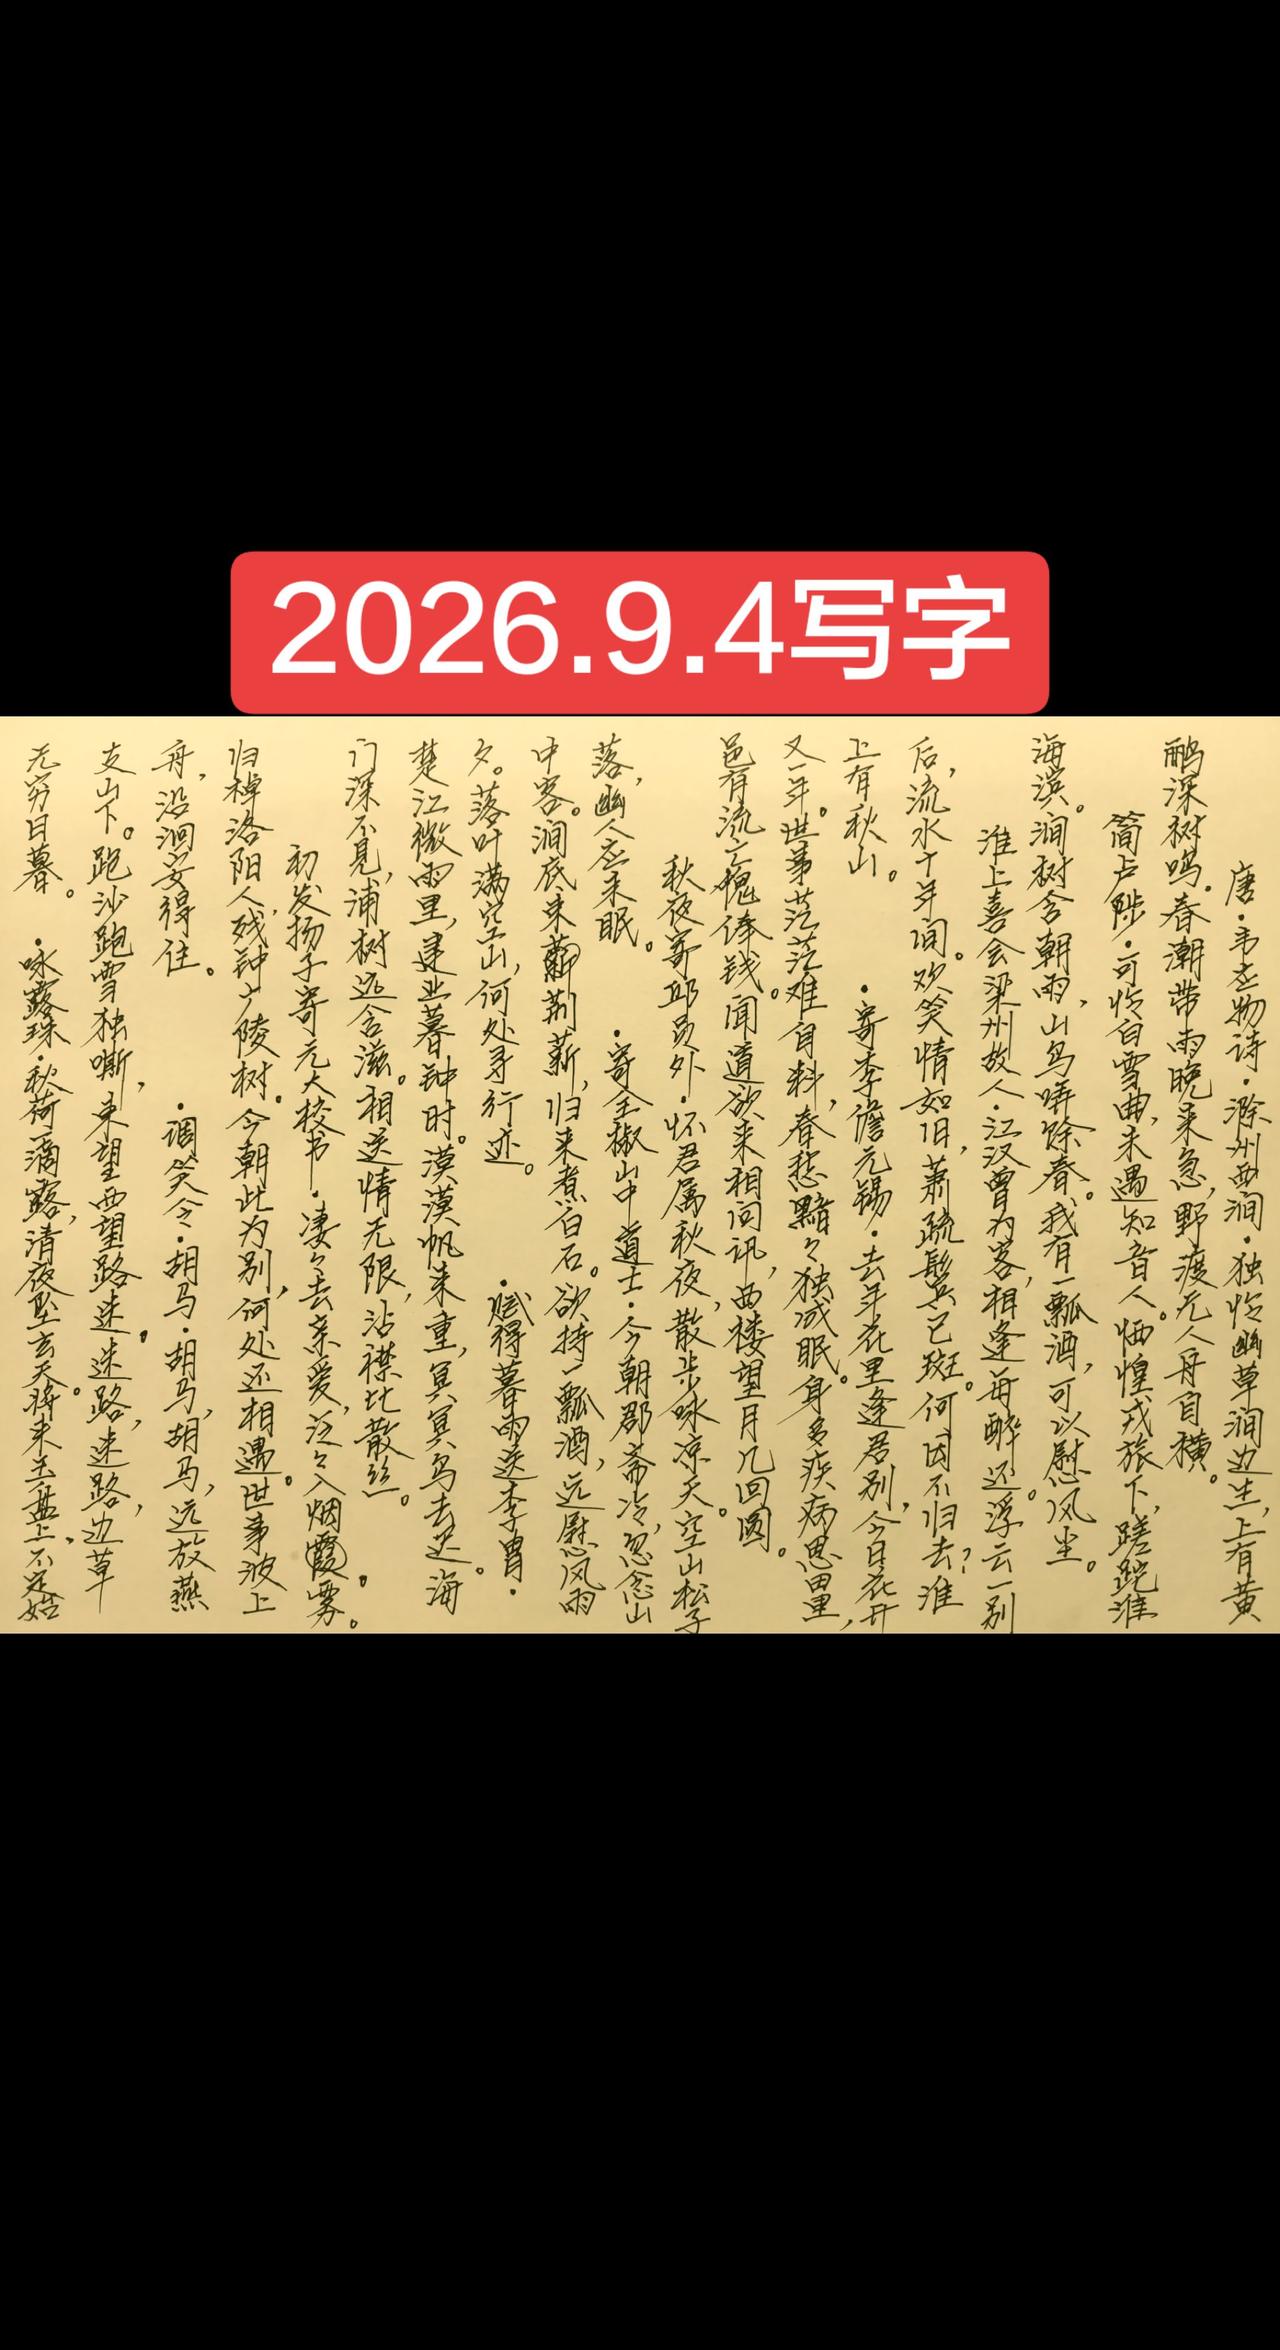 2026.9.4写字
唐·韦应物诗·滁州西涧·独怜幽草涧边生,上有黄
鹂深树鸣。春潮带雨晚来急,野渡无人舟自横。
简卢陟·可怜白雪曲,未遇知音人。恓惶戎旅下,蹉跎淮
海滨。涧树含朝雨,山鸟哢馀春。我有一瓢酒,可以慰风尘。
淮上喜会梁州故人·江汉曾为客,相逢每醉还。浮云一别
后,流水十年间。欢笑情如旧,萧疏鬓已斑。何因不归去?淮
上有秋山。·寄李儋元锡·去年花里逢君别,今日花开
又一年。世事茫茫难自料,春愁黯々独成眠。身多疾病思田里,
邑有流亡愧俸钱。闻道欲来相问讯,西楼望月几回圆。
秋夜寄邱员外·怀君属秋夜,散步咏凉天。空山松子
落,幽人应未眠。·寄全椒山中道士·今朝郡斋冷,忽念山
中客。涧底束荆薪,归来煮白石。欲持一瓢酒,远慰风雨
夕。落叶满空山,何处寻行迹。·赋得暮雨送李胄·
楚江微雨里,建业暮钟时。漠漠帆来重,冥冥鸟去迟。海
门深不见,浦树远含滋。相送情无限,沾襟比散丝。
初发扬子寄元大校书·凄々去亲爱,泛々入烟雾。
归棹洛阳人,残钟广陵树。今朝此为别,何处还相遇。世事波上
舟,沿洄安得住。·调笑令·胡马·胡马,胡马,远放燕
支山下。跑沙跑雪独嘶,东望西望路迷。迷路,迷路,边草
无穷日暮。·咏露珠·秋荷一滴露,清夜坠玄天。将来玉盘上,不定始